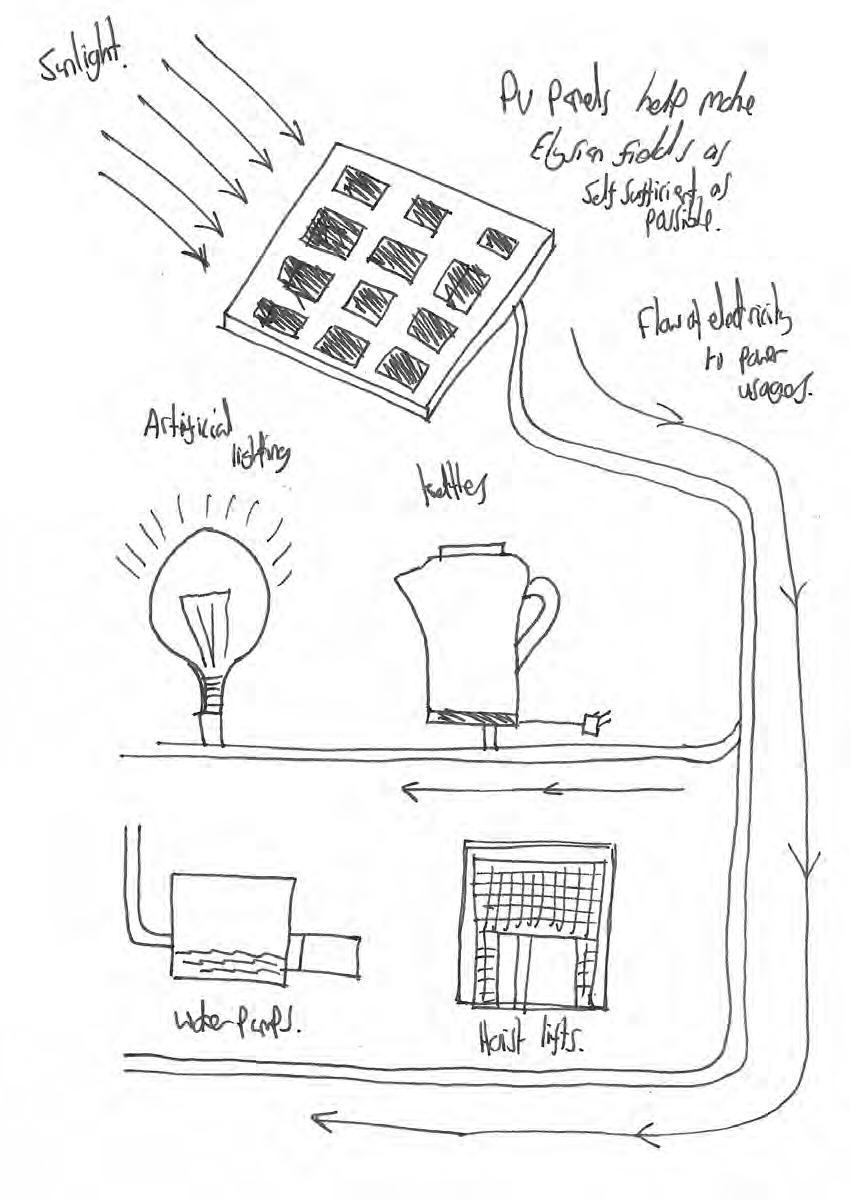 Sunlight.
PV Panels help make
Elysian fields as
self sufficient as
possible.
Flow of electricity
to power
usages.
Artificial
lighting
kettles
water pumps.
Hoist lifts.